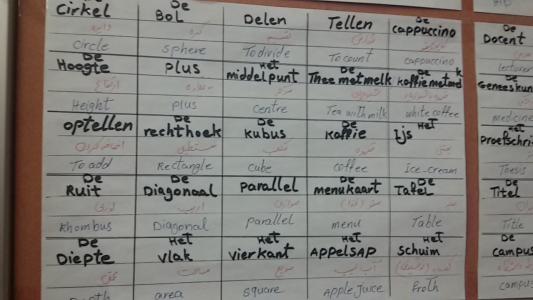 Cirkel De Bol Delen Tellen De cappuccino De Docent
دایره کره تقسیم
circle sphere To divide To count cappuccino lecturer
De Hoogte plus Het middelpunt De Thee met melk De koffie met melk De Geneeskun
ارتفاع مرکز
Height plus centre Tea with milk white coffee medicine
optellen De rechthoek De kubus De Koffie Het Ijs Het Proefschri
اضافه کردن مستطیل مکعب قهوه بستنی
To add Rectangle cube coffee Ice-cream Thesis
De Ruit De Diagonaal parallel De menukaart De Tafel De Titel
لوزی موازی میز
Rhombus Diagonal parallel menu Table Title
De Diepte Het vlak Het vierkant Het APPELSAP Het schuim De campus
عمق مساحت مربع آب سیب
area square Apple juice froth campus